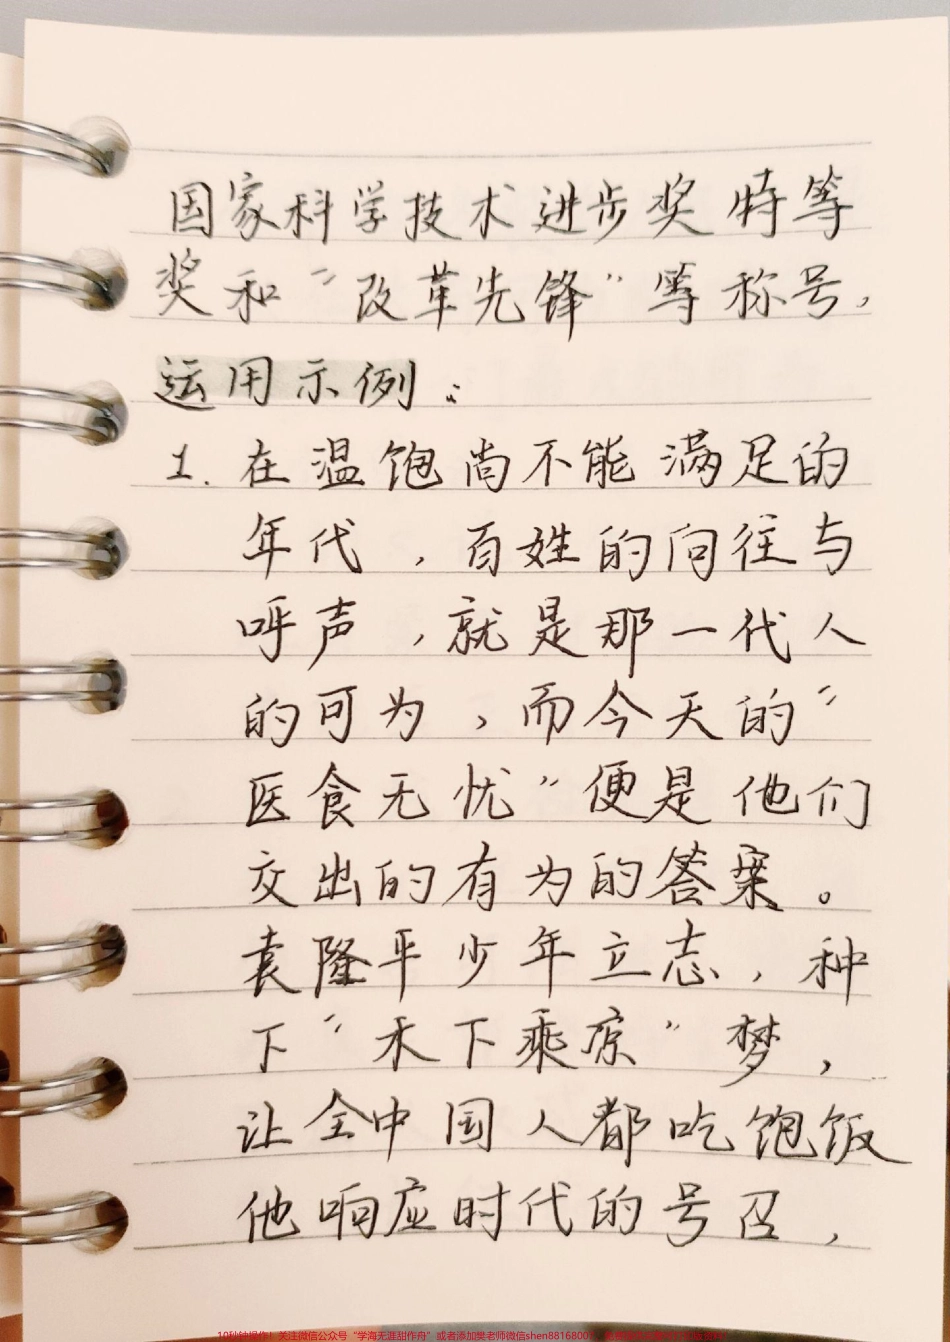 国家科学技术进步奖特等
奖和“改革先锋”等称号，
运用示例：
1.在温饱尚不能满足的
年代，百姓的向往与
呼声，就是那一代人
的可为，而今天的“
医食无忧”便是他们
交出的有为的答案。
袁隆平少年立志，种
下“禾下乘凉”梦，
让全中国人都吃饱饭
他响应时代的号召，
10秒钟操作！关注微信公众号“学海无涯甜作舟”或者添加樊老师微信shen88168007